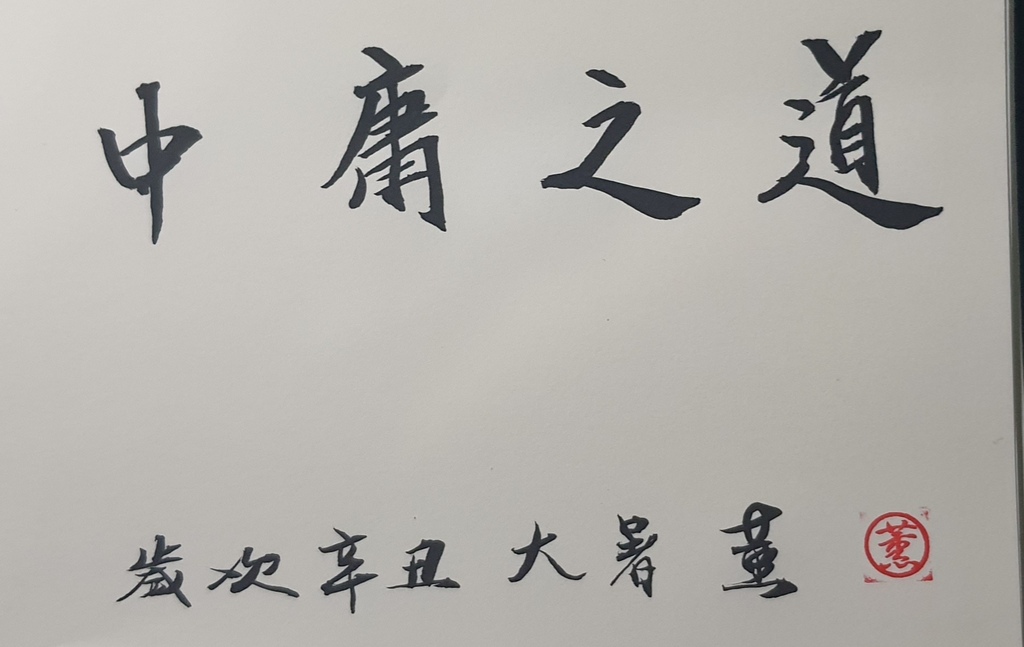 中庸之道
歲次辛丑 大暑 董
蕙